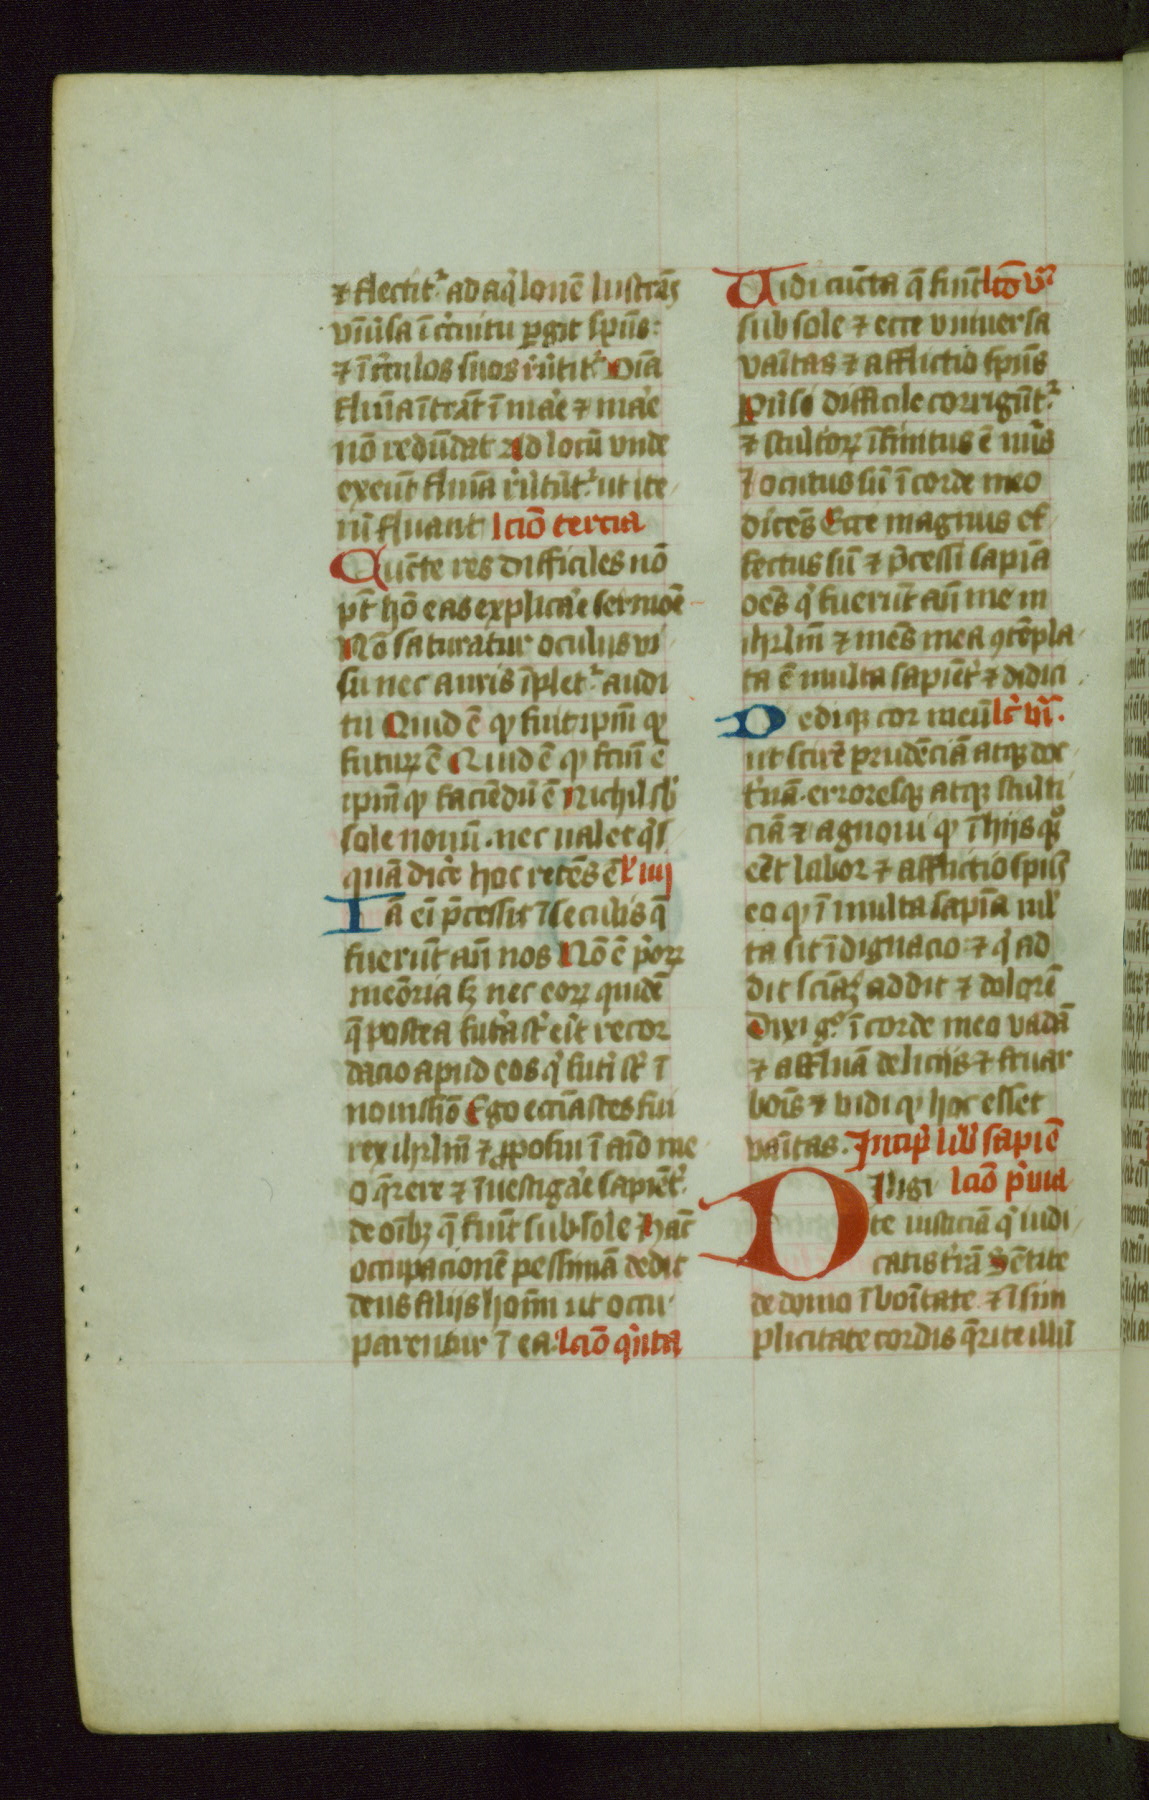 ⁊ flectit᷑ ad aq̇lonē lustrās
vnīūsa ī cͥcuitu ꝑgit spūs·
⁊ ī cͥculos suos rūtit᷑ Oīa
flūīa ītrāt ī maͬe ⁊ maͬe
nō redūdat Ad locū vnde
exeūt flūīa rūtūt᷑ ut ite
rū fluant lcīo tercia
Cūcte res difficiles nō
pt̄ hō eas explicaͬe sermōe
Nō saturatur oculus vi
su nec auris īplet᷑ audi
tu Quid ē qͩ fuit ipm̄ qͩ
futurꝝ ē Quid ē qͩ fctm̄ ē
ipm̄ qͩ faciēdū ē Nichil sb̄
sole nouū · nec ualet qͥs
quā dicͤe hoc recēs ē l̄ iiij
Iā eī p̄cessit ī seculis q̄
fuerūt an̄ nos Nō ē pͥorꝝ
meōria sꝫ nec eorꝝ quidē
q̄ postea futͣa st̄ eͥt recor
dacio apud eos qͥ futͥ st̄ ī
nouissīo Ego ecc̄iastes fui
rex ihrlm̄ ⁊ ꝓposui ī aīo me
o q̄rere ⁊ īuestigaͬe sapiēt᷑
de oībꝫ q̄ fiūt sub sole Hāc
occupacionē pessimā dedit
deus filijs hoīm ut occu
parentur ī ea lcīo qͥnta
Uidi cūcta q̄ fiūt lcō vͣ
sub sole ⁊ ecce vniuersa
vaītas ⁊ afflictio spūs
Puͥsi difficile corrigūt᷑
⁊ stultorꝝ īfinitus ē nūs
Locutus sū ī corde meo
dicēs Ecce magnus ef
fectus sū ⁊ p̄cessi sapīa
oēs qͥ fuerūt an̄ me in
ihrlm̄ ⁊ mēs mea ꝯtēpla
ta ē multa sapiēt᷑ ⁊ didici
Dediqꝫ cor meū lc̄ vi·
ut scirē prudēciā atqꝫ doc
tͥnā · erroresqꝫ atqꝫ stulti
ciā ⁊ agnoui qͩ ī hijs qͦqꝫ
eēt labor ⁊ afflictio spūs
eo qͩ ī multa sapīa ml̄
ta sit īdignacio ⁊ qͥ ad
dit sciāꝫ addit ⁊ dolorē
Dixi gͦ ī corde meo vadā
⁊ affluā delicijs ⁊ fruar
boīs ⁊ vidi qͩ hoc esset
vaītas · Incip̄ lib̄ sapiē
Diligi lcīo pͥma
te iusticiā qͥ iudi
catis tͬrā Sētite
de dn̄o ī boītate ⁊ ī sim
plicitate cordis q̄rite illū